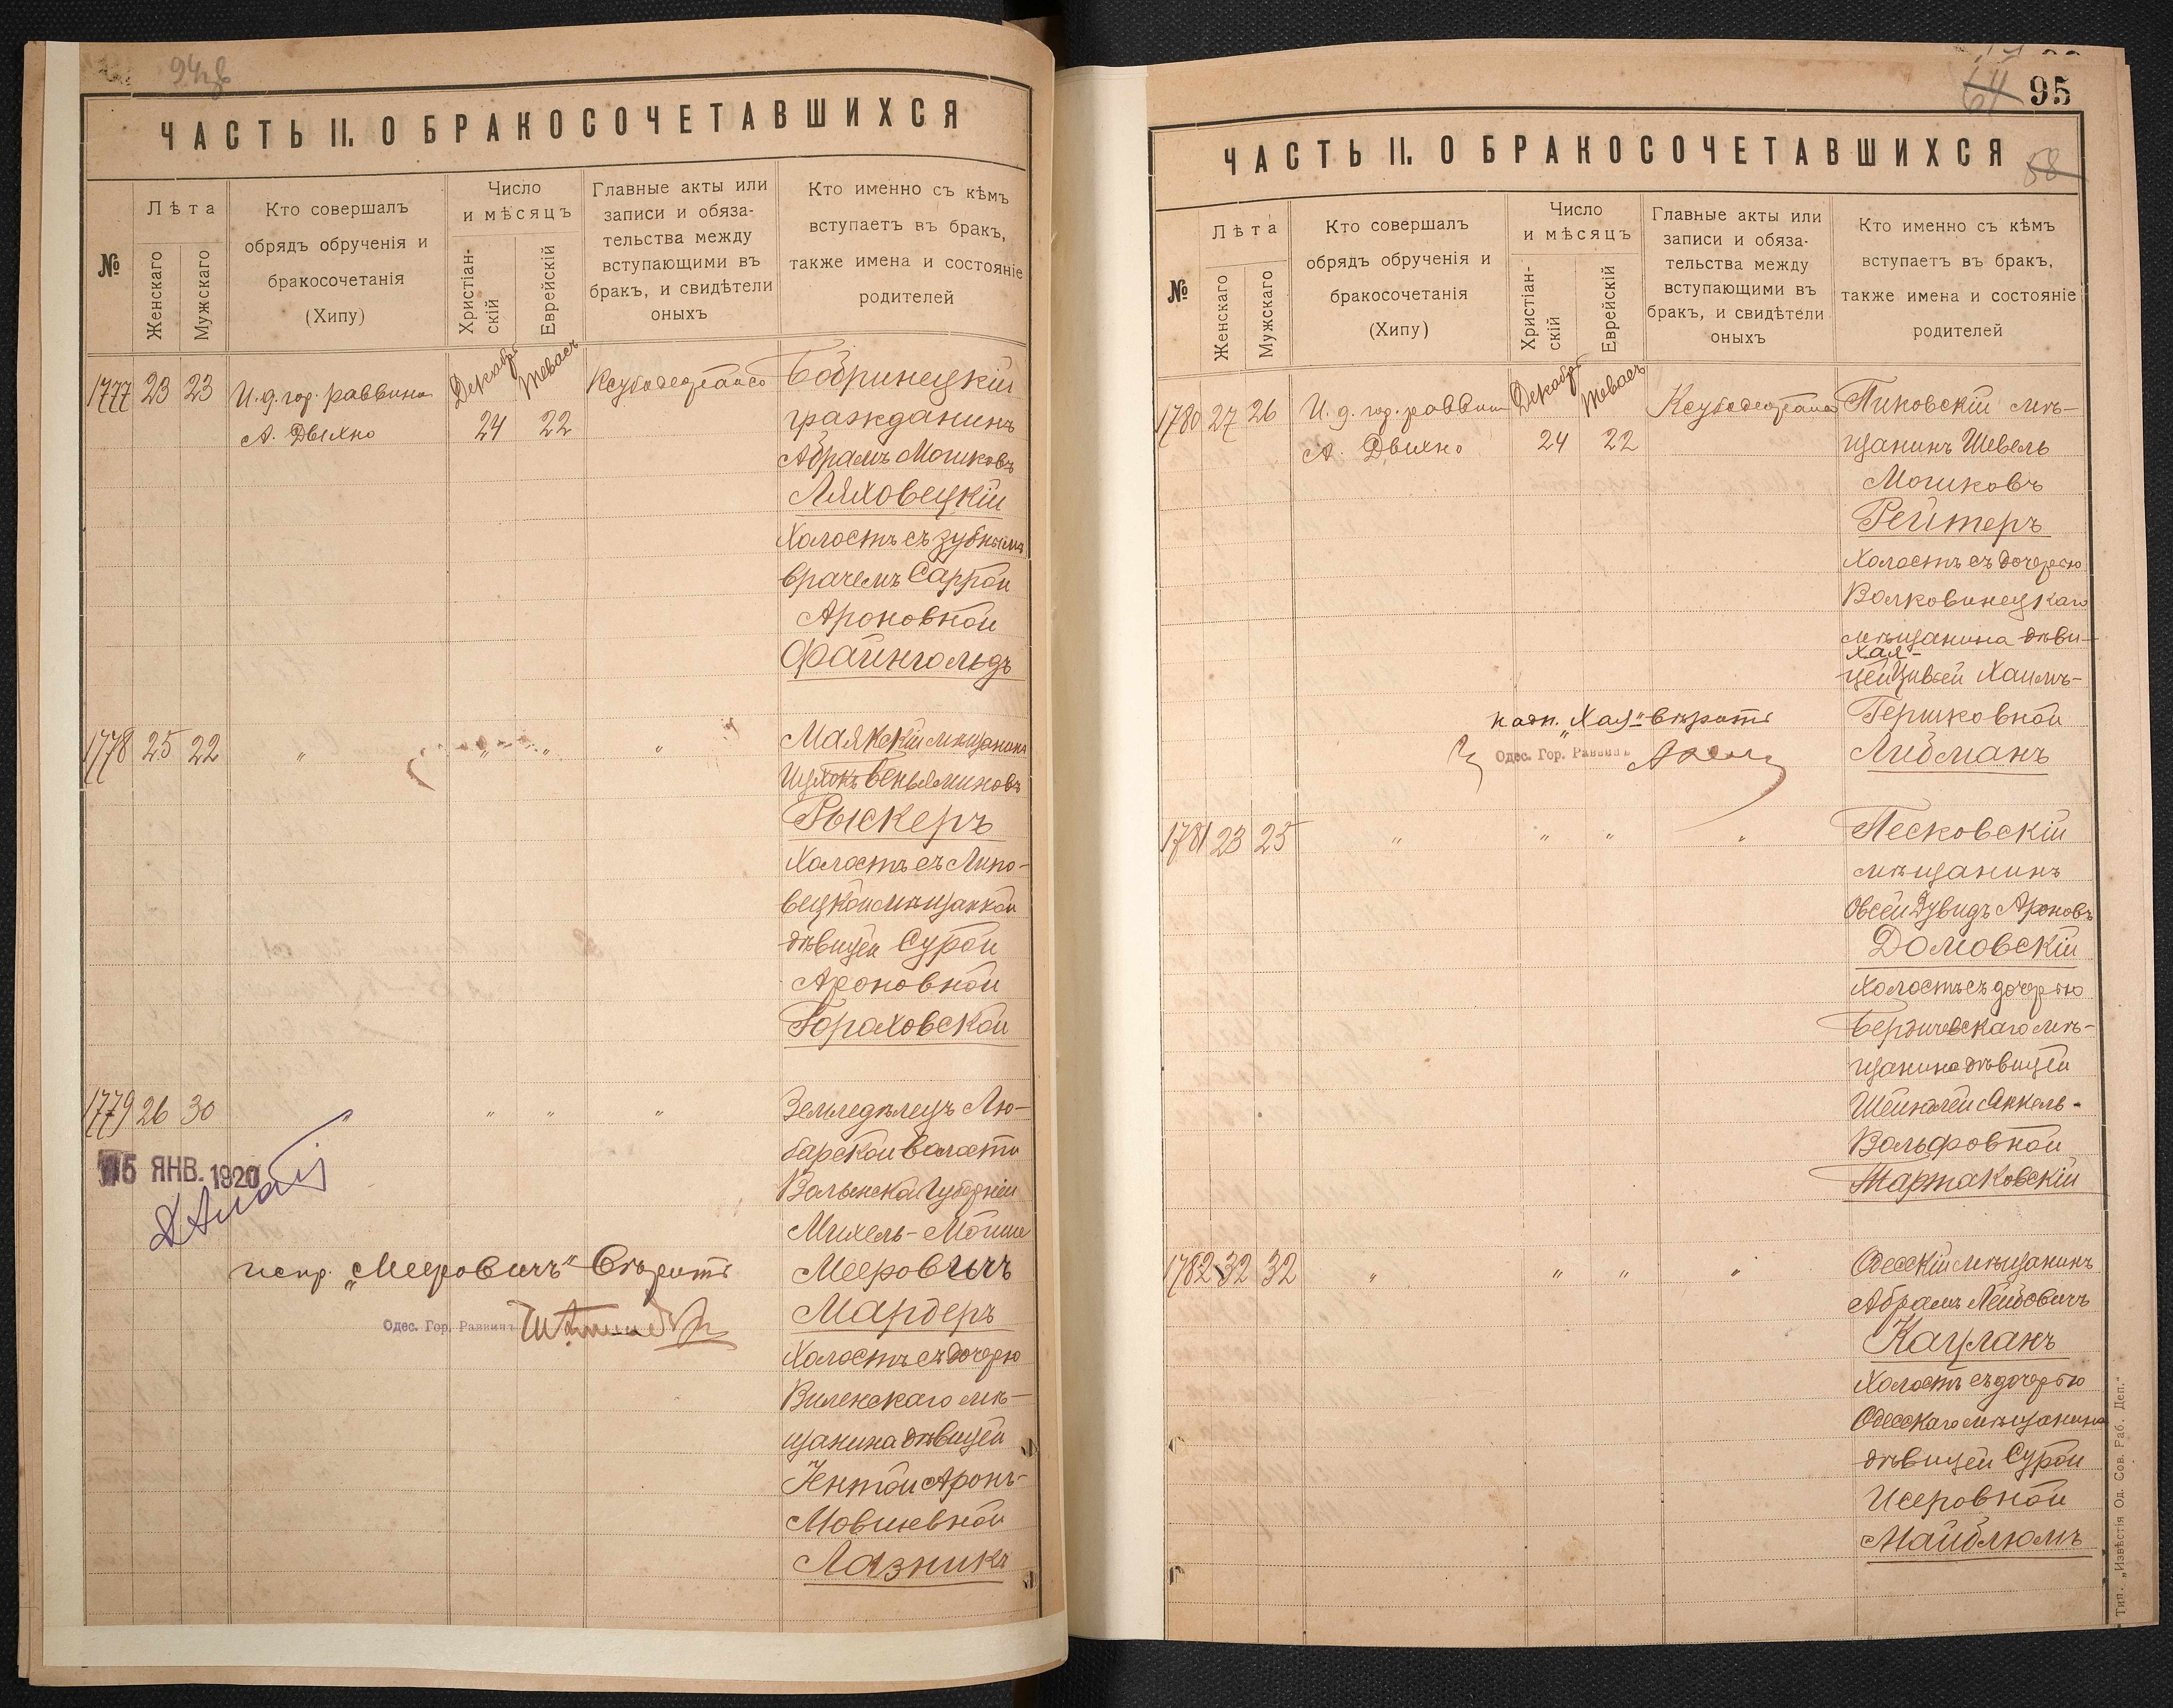 94об
ЧАСТЬ II. О БРАКОСОЧЕТАВШИХСЯ
№
Лѣта
Женскаго
Мужскаго
Кто совершалъ
обрядъ обрученія и
бракосочетанія
(Хипу)
Число
и мѣсяцъ
Христіан-
скій
Еврейскій
Главные акты или
записи и обяза-
тельства между
вступающими въ
бракъ, и свидѣтели
оныхъ
Кто именно съ кѣмъ
вступаетъ въ бракъ,
также имена и состояніе
родителей
1777 23 23 И. д. гор. раввина Декабр. Теваес Бобринецкій
А. Двихно 24 22 гражданинъ
Абрамъ Мошковъ
Ляховецкій
Холостъ съ зубнымъ
врачемъ Саррой
Ароновной
Файнгольдъ
1778 25 22 " " " " Маякскій мѣщанинъ
Беньяминовъ
Рыскеръ
Холостъ съ Липо-
вецкой мѣщанкой
дѣвицей Сурой
Ароновной
Гороховской
1779 26 30 " " " " Земледѣлецъ Лю-
барской волости
Волынской Губерніи
15 ЯНВ. 1920
Михель-Мойше
испр. „Мееровичъ" вѣрить Мееровичъ
Одес. Гор. Раввинъ Мардеръ
Холостъ съ дочерью
Виленскаго мѣ-
щанина дѣвицей
Ентой Аронъ-
Мовшевной
Лазникъ
64 95
ЧАСТЬ II. О БРАКОСОЧЕТАВШИХСЯ
58
№
Лѣта
Женскаго
Мужскаго
Кто совершалъ
обрядъ обрученія и
бракосочетанія
(Хипу)
Число
и мѣсяцъ
Христіан-
скій
Еврейскій
Главные акты или
записи и обяза-
тельства между
вступающими въ
бракъ, и свидѣтели
оныхъ
Кто именно съ кѣмъ
вступаетъ въ бракъ,
также имена и состояніе
родителей
1780 27 26 И. д. гор. раввина Декабр. Теваес Пиковскій мѣ-
А. Двихно 24 22 щанинъ Шевель
Мошковъ
Рейтеръ
Холостъ съ дочерью
Волковинецкаго
мѣщанина дѣви-
Хая-
цей Цивьей Хаимъ-
надп. „Хая" вѣрить Гершковной
Одес. Гор. Раввинъ Либманъ
1781 23 25 " " " " Песковскій
мѣщанинъ
Овсей Дувидъ Ароновъ
Домовскій
Холостъ съ дочерью
Бердичевскаго мѣ-
щанина дѣвицей
Шейндлей Янкель-
Вольфовной
Тартаковскій
1782 32 32 " " " " Одесскій мѣщанинъ
Абрамъ Лейбовичъ
Капланъ
Холостъ съ дочерью
Одесскаго мѣщанина
дѣвицей Сурой
Исеровной
Майблюмъ
Тип. „Извѣстія Од. Сов. Раб. Деп."